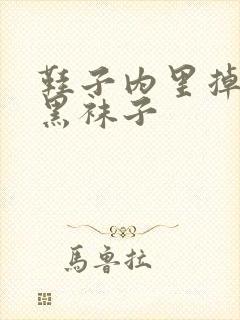 鞋子内里掉
黑袜子
馬魯拉